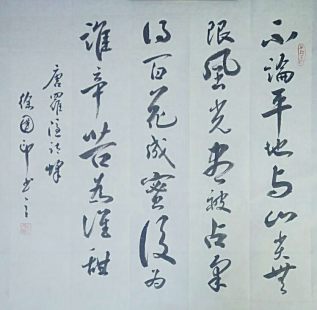 不論平地与山尖無
限風光尽被占采
得百花成蜜後为
誰辛苦为誰甜
唐羅隱詩蜂
徐国印书